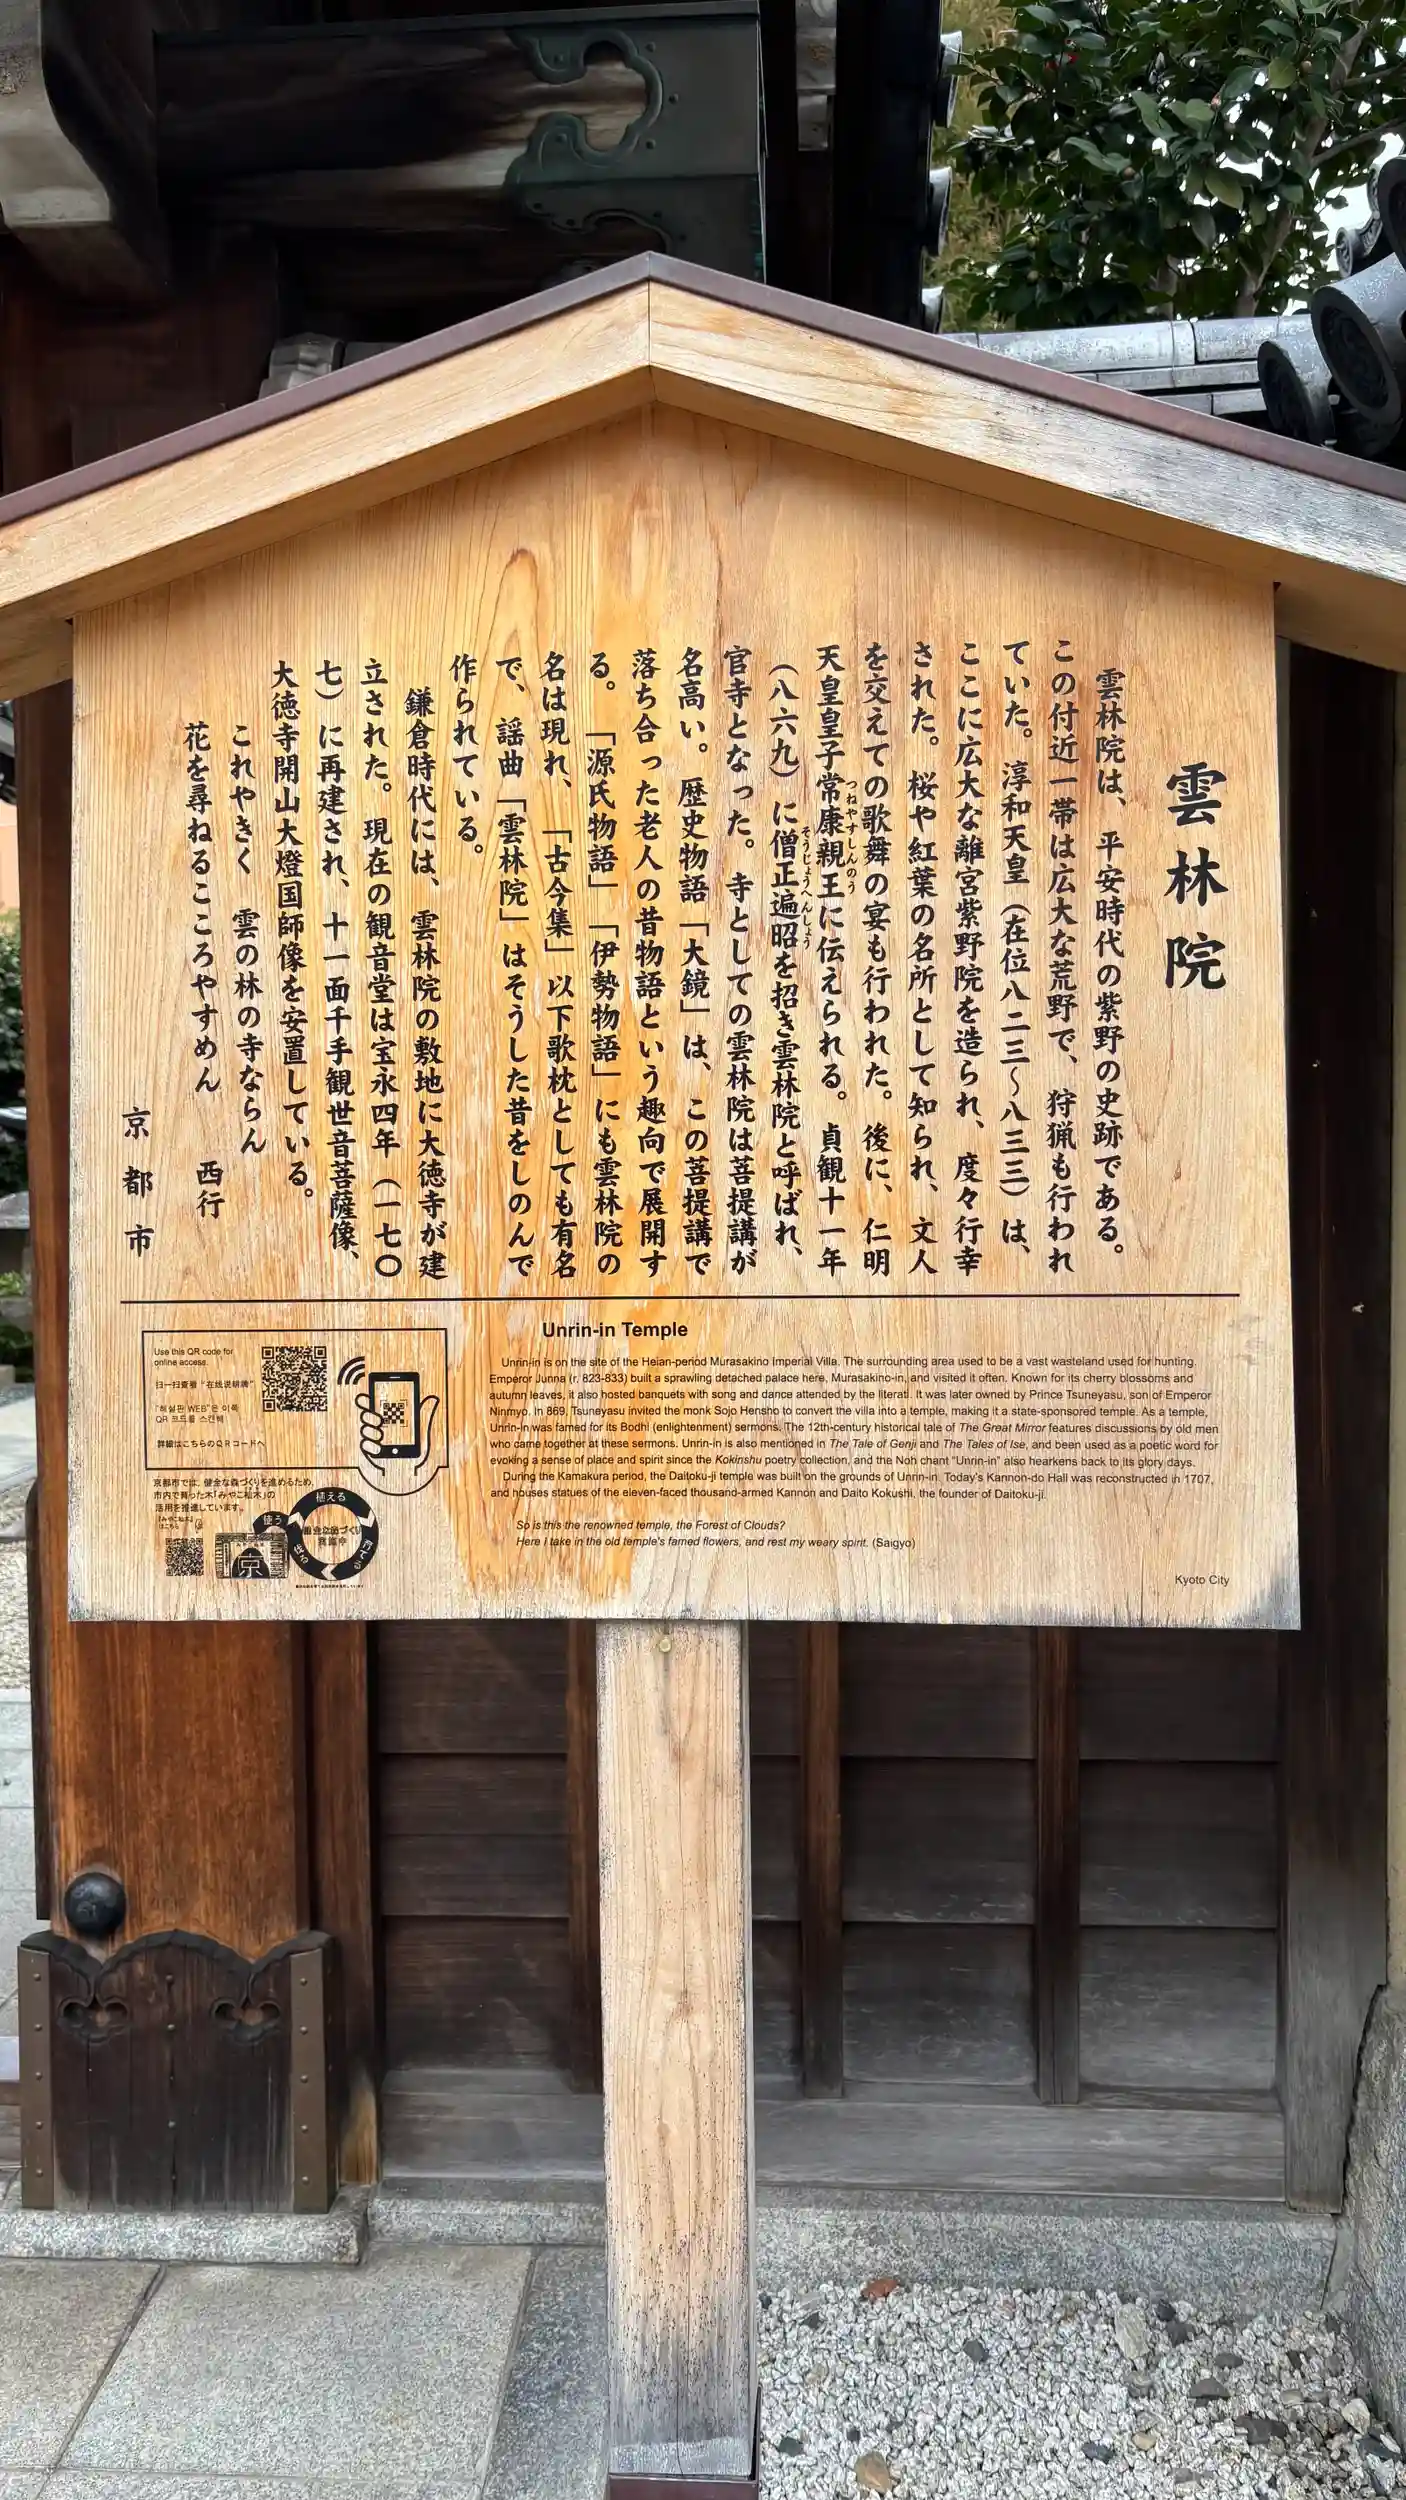 雲林院
雲林院は、平安時代の紫野の史跡である。
この付近一帯は広大な荒野で、狩猟も行われ
ていた。淳和天皇（在位八二三～八三三）は、
ここに広大な離宮紫野院を造られ、度々行幸
された。桜や紅葉の名所として知られ、文人
を交えての歌舞の宴も行われた。後に、仁明
天皇皇子常康親王に伝えられる。貞観十一年
つねやすしんのう
（八六九）に僧正遍昭を招き雲林院と呼ばれ、
そうじょうへんしょう
官寺となった。寺としての雲林院は菩提講が
名高い。歴史物語「大鏡」は、この菩提講で
落ち合った老人の昔物語という趣向で展開す
る。「源氏物語」「伊勢物語」にも雲林院の
名は現れ、「古今集」以下歌枕としても有名
で、謡曲「雲林院」はそうした昔をしのんで
作られている。
鎌倉時代には、雲林院の敷地に大徳寺が建
立された。現在の観音堂は宝永四年（一七〇
七）に再建され、十一面千手観世音菩薩像、
大徳寺開山大燈国師像を安置している。
これやきく　雲の林の寺ならん
花を尋ねるこころやすめん　西行
京都市
Unrin-in Temple
Unrin-in is on the site of the Heian-period Murasakino Imperial Villa. The surrounding area used to be a vast wasteland used for hunting.
Emperor Junna (r. 823-833) built a sprawling detached palace here, Murasakino-in, and visited it often. Known for its cherry blossoms and
autumn leaves, it also hosted banquets with song and dance attended by the literati. It was later owned by Prince Tsuneyasu, son of Emperor
Ninmyo. In 869, Tsuneyasu invited the monk Sojo Hensho to convert the villa into a temple, making it a state-sponsored temple. As a temple,
Unrin-in was famed for its Bodhi (enlightenment) sermons. The 12th-century historical tale of The Great Mirror features discussions by old men
who came together at these sermons. Unrin-in is also mentioned in The Tale of Genji and The Tales of Ise, and been used as a poetic word for
evoking a sense of place and spirit since the Kokinshu poetry collection, and the Noh chant "Unrin-in" also hearkens back to its glory days.
During the Kamakura period, the Daitoku-ji temple was built on the grounds of Unrin-in. Today's Kannon-do Hall was reconstructed in 1707,
and houses statues of the eleven-faced thousand-armed Kannon and Daito Kokushi, the founder of Daitoku-ji.
So is this the renowned temple, the Forest of Clouds?
Here I take in the old temple's famed flowers, and rest my weary spirit. (Saigyo)
Kyoto City
Use this QR code for
online access.
扫一扫查看"在线说明牌"
"해설판 WEB"은 이쪽
QR 코드를 스캔해
詳細はこちらのQRコードへ
京都市では、健全な森づくりを進めるため、
市内で育った木「みやこ杣木」の
活用を推進しています。
「みやこ杣木」
はこちら
植える
育てる
使う
京